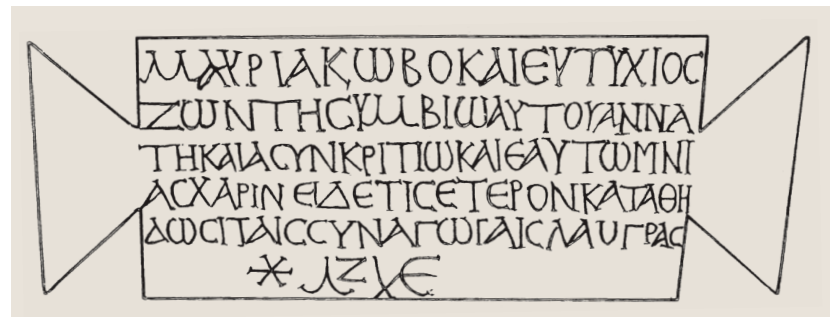 ΜΑΥΡΙΑΚΩΒΟΚΑΙΕΥΤΥΧΙΟϹ
ΖΩΝΤΗϹΥΜΒΙΩΑΥΤΟΥΑΝΝΑ
ΤΗΚΑΙΑϹΥΝΚΡΙΤΙΩΚΑΙΕΑΥΤΩΜΝΙ
ΑϹΧΑΡΙΝ ΕΙΔΕΤΙϹΕΤΕΡΟΝΚΑΤΑΘΗ
ΔΩϹΙΤΑΙϹϹΥΝΑΓΩΓΑΙϹΛΑΥΓΡΑϹ